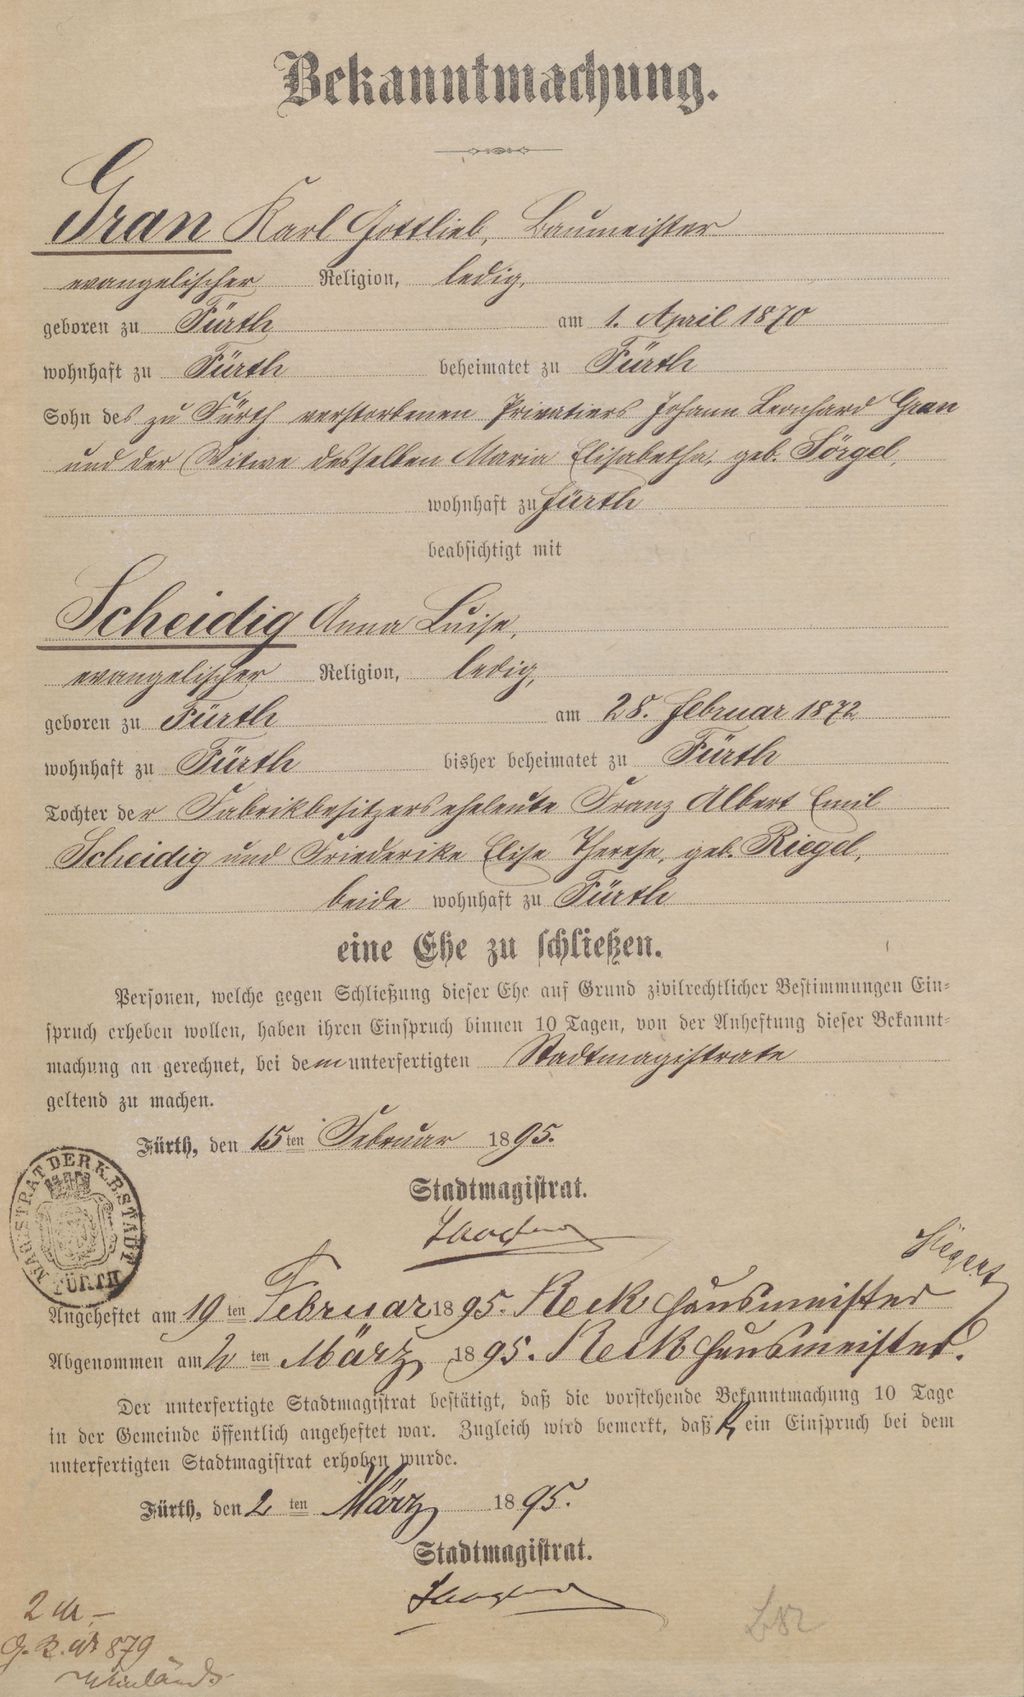 Bekanntmachung.
Gran Karl Gottlieb, Baumeister
evangelischer Religion, ledig,
geboren zu Fürth am 1. April 1870
wohnhaft zu Fürth beheimatet zu Fürth
Sohn des zu Fürth verstorbenen Privatiers Johann Leonhard Gran
und der Witwe desselben Maria Elisabetha, geb. Sörgel,
wohnhaft zu Fürth
beabsichtigt mit
Scheidig Anna Luise,
evangelischer Religion, ledig,
geboren zu Fürth am 28. Februar 1872
wohnhaft zu Fürth bisher beheimatet zu Fürth
Tochter der Fabrikbesitzerseheleute Franz Albert Emil
Scheidig und Friederike Elise Therese, geb. Riegel,
beide wohnhaft zu Fürth
eine Ehe zu schließen.
Personen, welche gegen Schließung dieser Ehe auf Grund zivilrechtlicher Bestimmungen Ein-
spruch erheben wollen, haben ihren Einspruch binnen 10 Tagen, von der Anheftung dieser Bekannt-
machung an gerechnet, bei dem unterfertigten Stadtmagistrate
geltend zu machen.
Fürth, den 15ten Februar 1895.
MAGISTRAT DER K.B. STADT FÜRTH
Stadtmagistrat.
Angeheftet am 19ten Februar 1895. Reck Hausmeister
Abgenommen am 2ten März 1895. Reck Hausmeister.
Der unterfertigte Stadtmagistrat bestätigt, daß die vorstehende Bekanntmachung 10 Tage
in der Gemeinde öffentlich angeheftet war. Zugleich wird bemerkt, daß kein Einspruch bei dem
unterfertigten Stadtmagistrat erhoben wurde.
Fürth, den 2ten März 1895.
Stadtmagistrat.
2 M.–
G. R. No 879